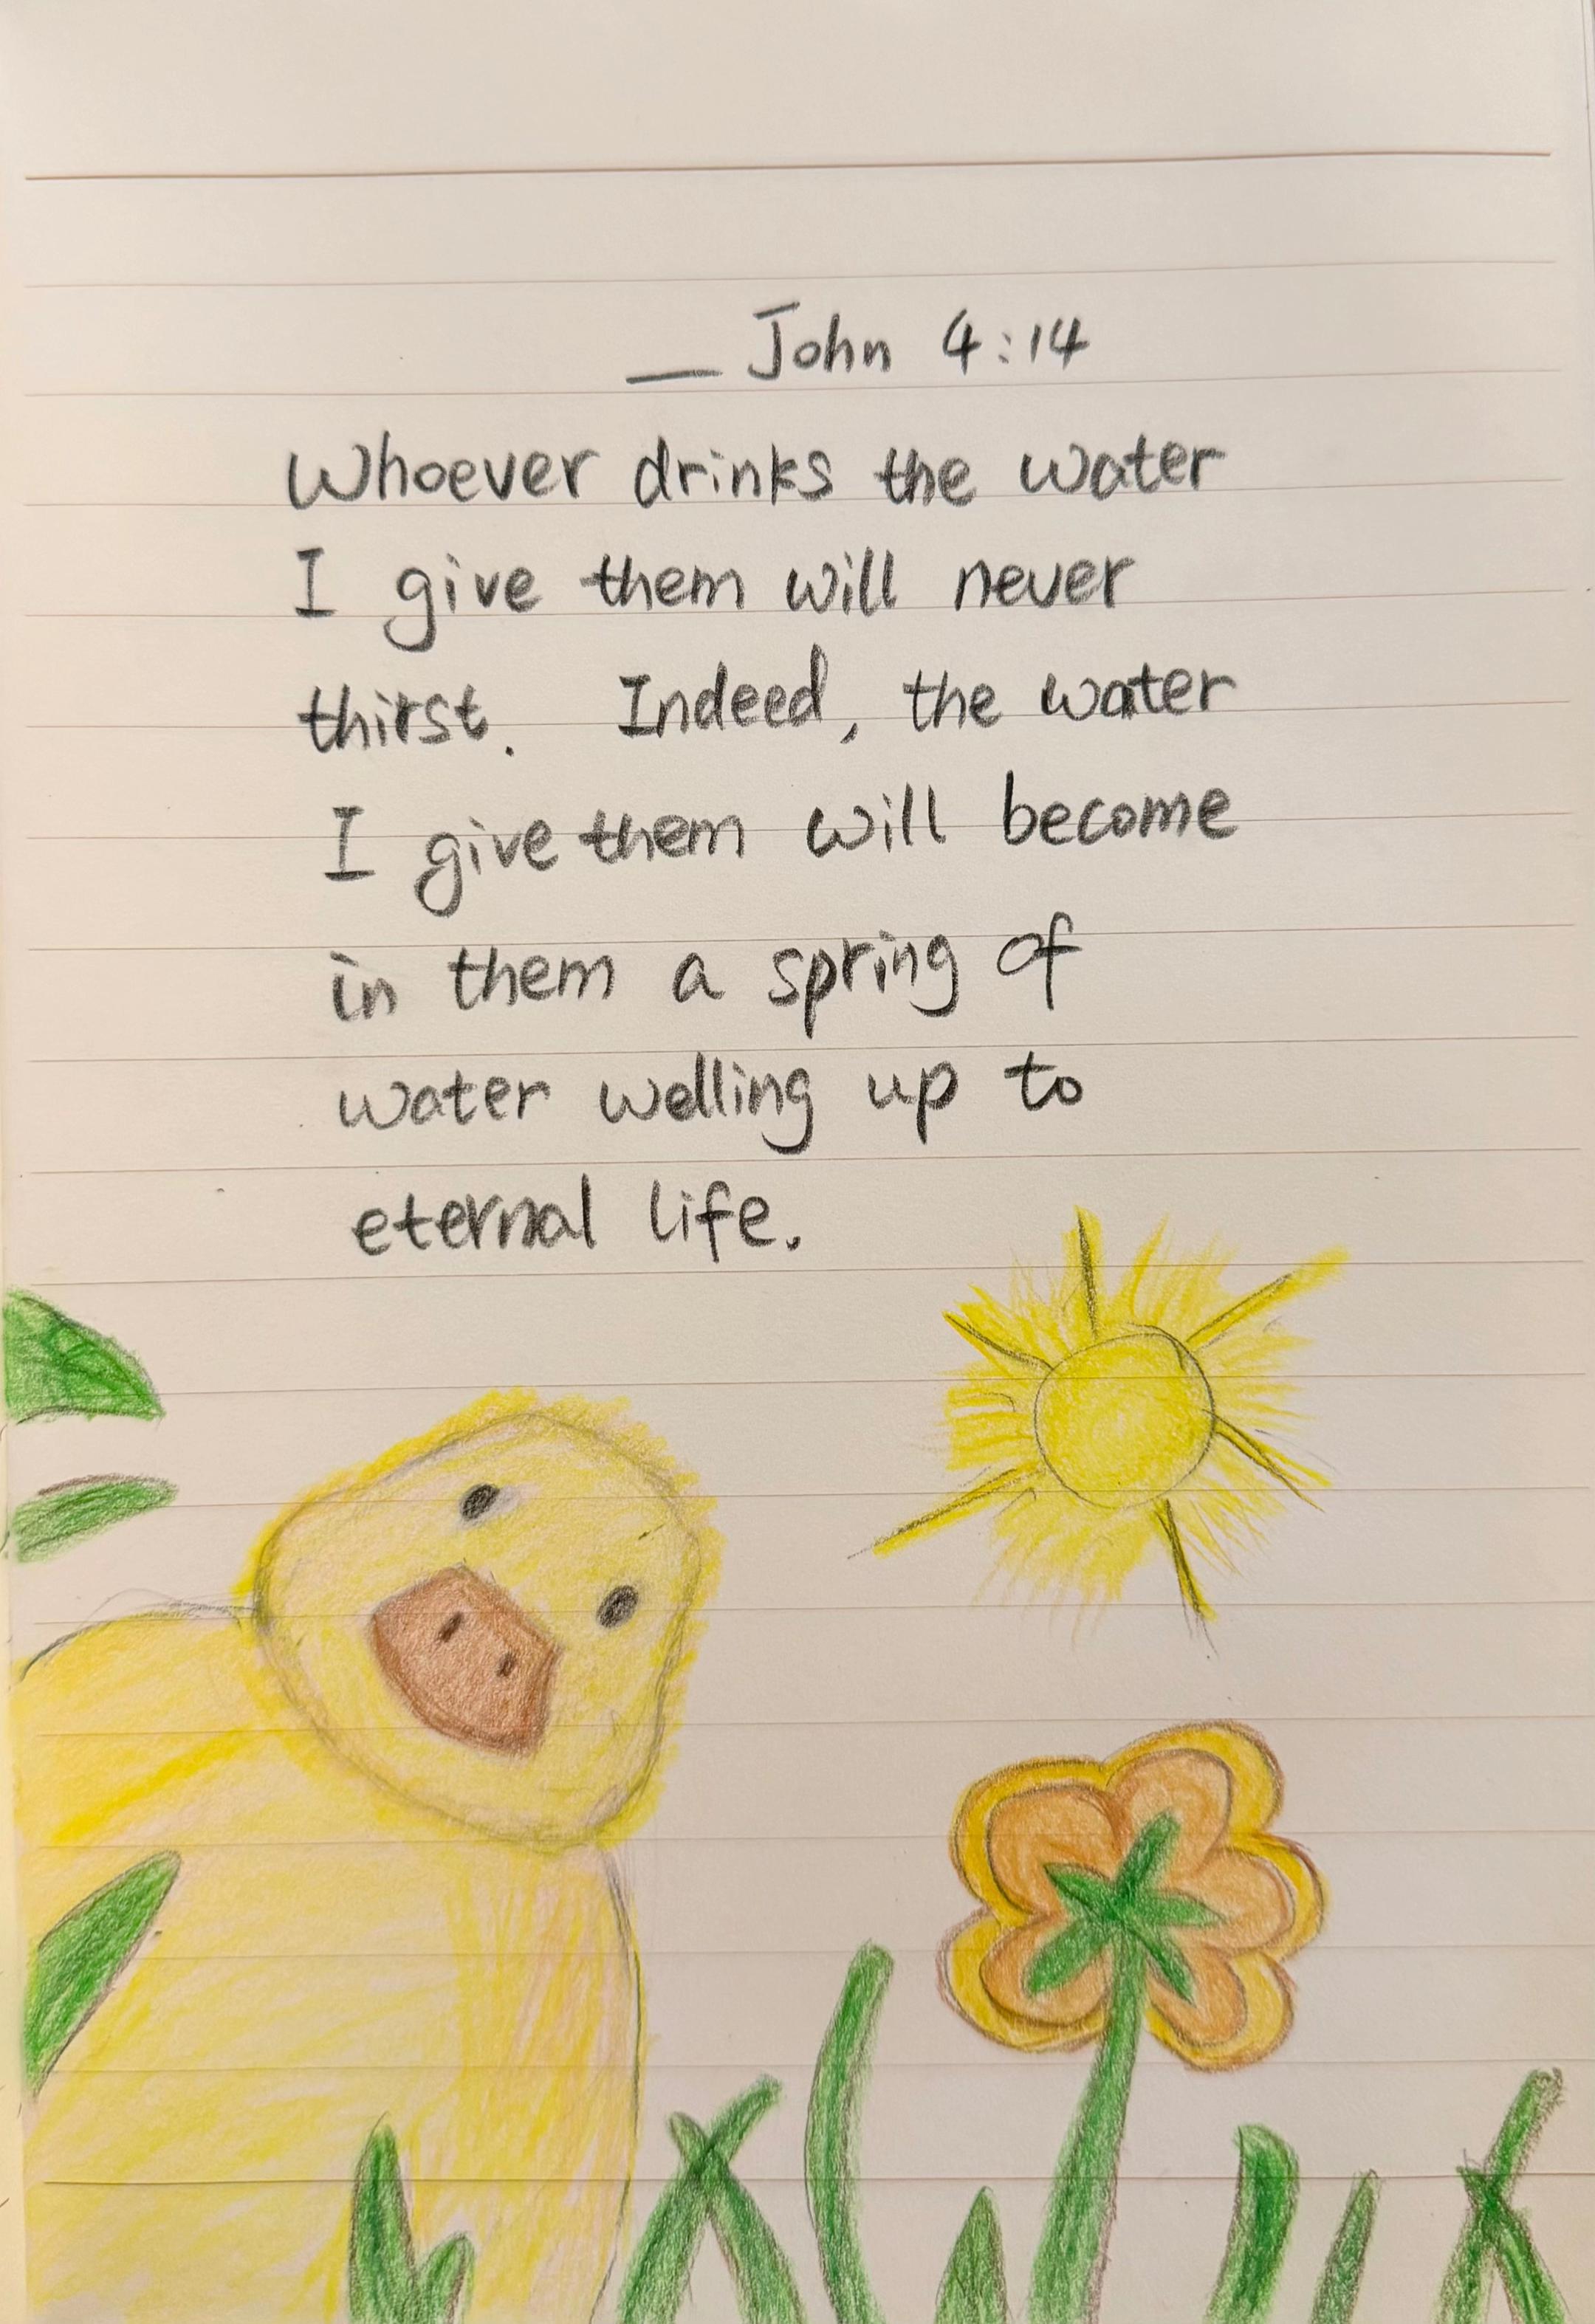 — John 4:14
Whoever drinks the water
I give them will never
thirst. Indeed, the water
I give them will become
in them a spring of
water welling up to
eternal life.